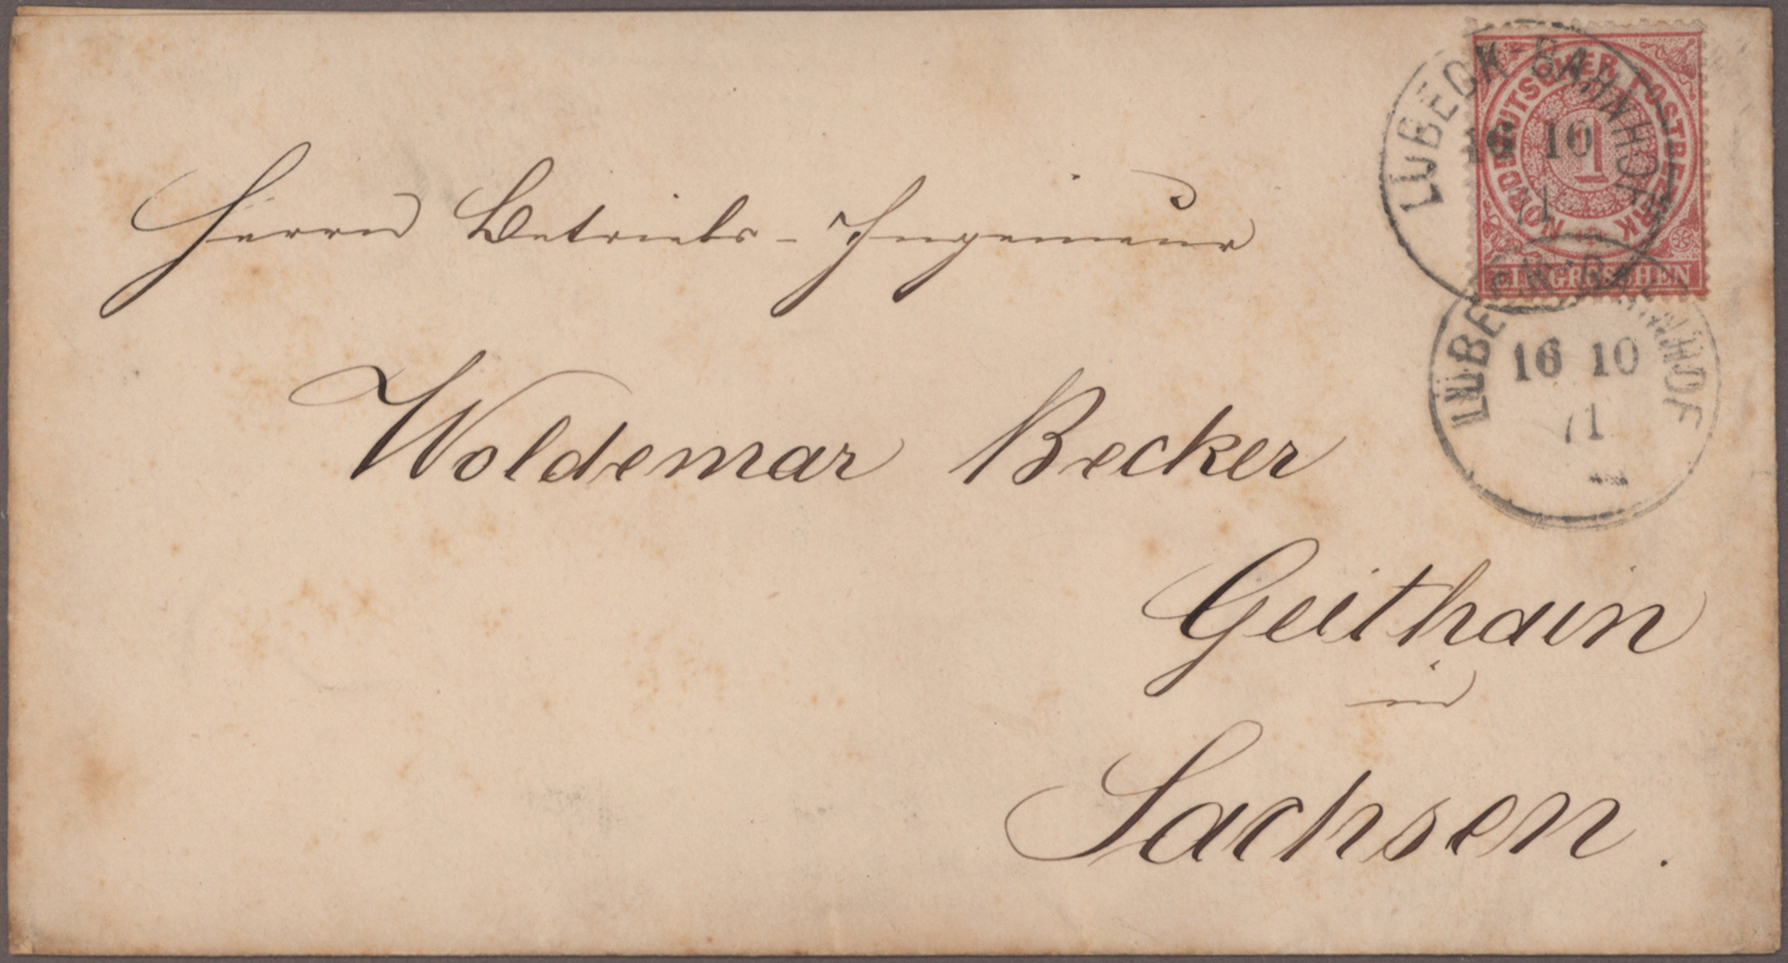 NORDDEUTSCHER POSTBEZIRK
1
EIN GROSCHEN
LÜBECK-BAHNHOF
16 10
71
LÜBECK-BAHNHOF
16 10
71
Herrn Betriebs-Ingenieur
Woldemar Becker
Geithain
in
Sachsen.